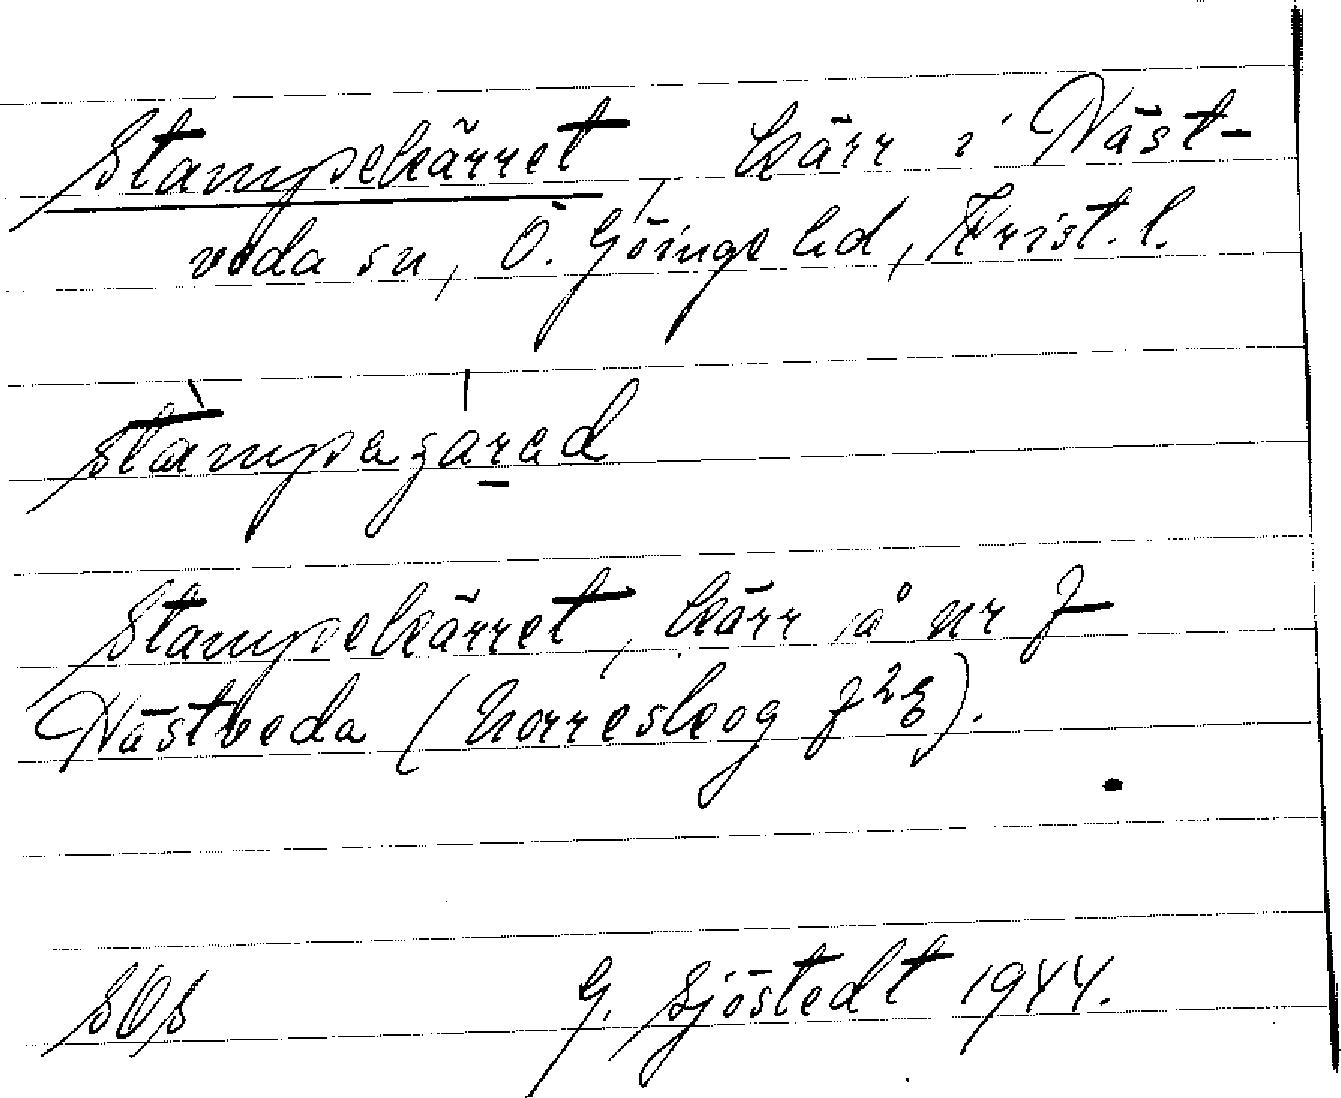 Stampekärret, kärr i Näst-
veda sn, Ö. Göinge hd, Krist. l.
stàmpaʒárad
Stampekärret, kärr å nr 7
Nästveda (Norreskog 7²⁸).
SOS G. Sjöstedt 1944.